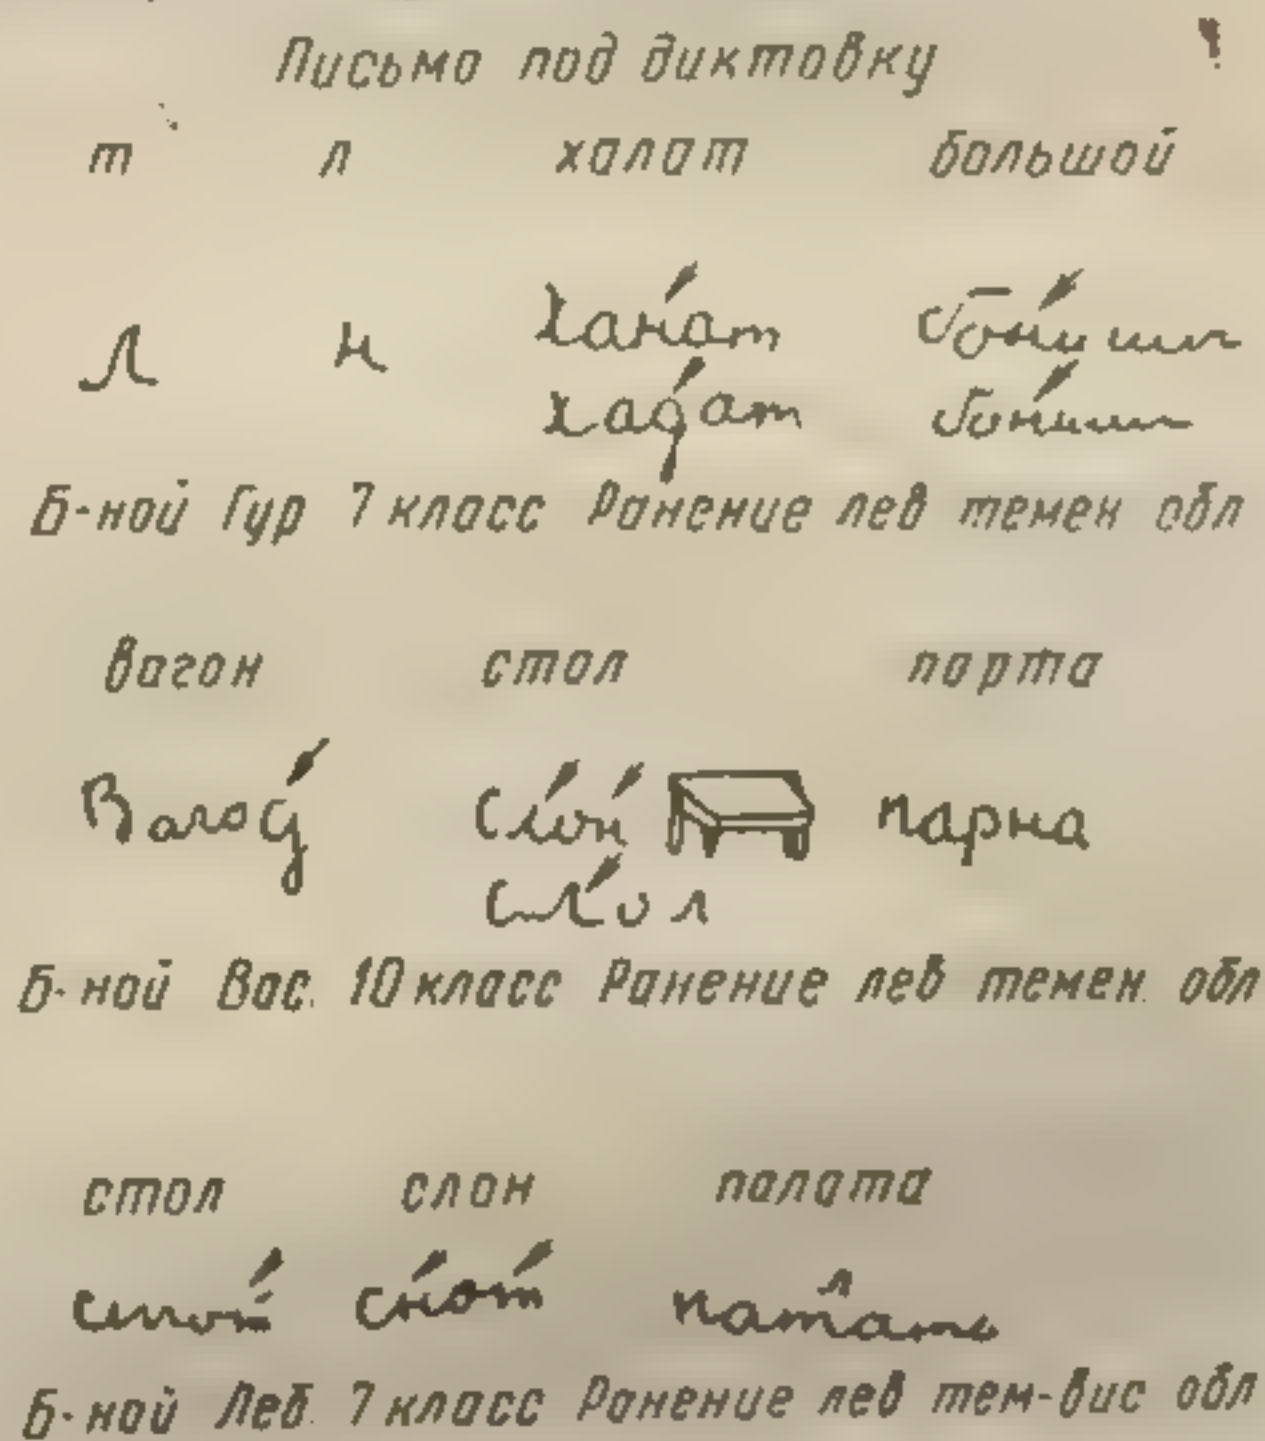 Письмо под диктовку
т л халат большой
Л н Ханат
хадат
Б-ной Гур 7 класс Ранение лев темен обл
вагон стол парта
Вагод слон парна
слол
Б-ной Вас. 10 класс Ранение лев темен. обл
стол слон палата
стот снот
Б-ной Лев. 7 класс Ранение лев тем-вис обл